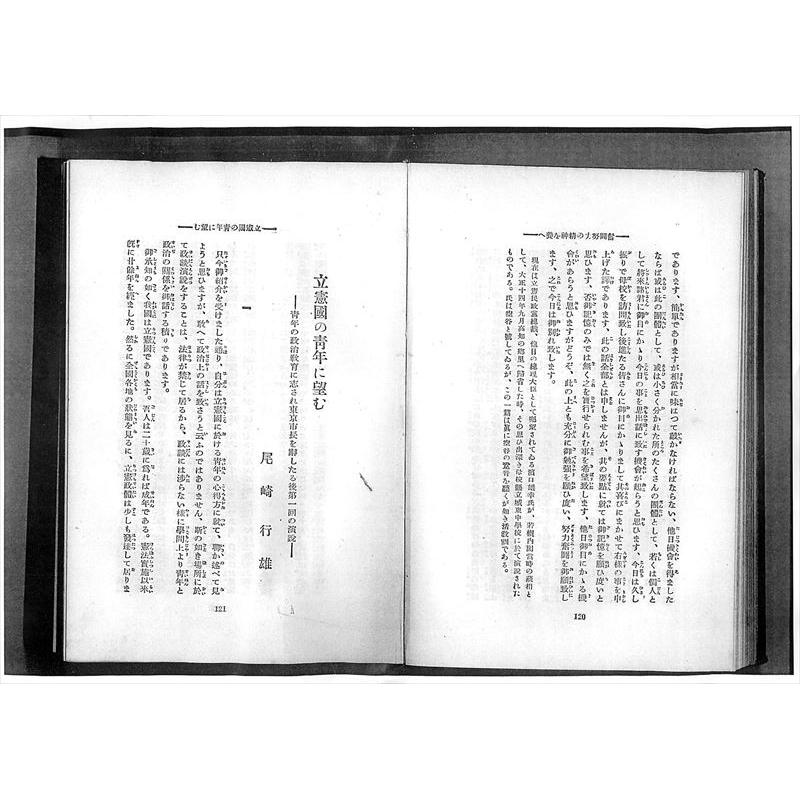 奮鬪努力の精神を養へ
であります、簡單でありますが相當に味はつて戴かなければならない、他日機會を得ました
ならば或は此の團體として、或は小さく分かれた所のたくさんの團體として、若くは個人と
して將來諸君に御目にかゝり今日の事を思出話に致す機會が起らうと思ひます、今日は久し
振りで母校を訪問致し後進たる皆さんに御目にかゝりまして其喜びにまかせて右樣の事を申
上げた譯であります、此の話全部とは申しませんが、其の要點に就ては御記憶を願ひ度いと
思ひます、否御記憶のみでは無く之を實行せられむ事を希望致します、他日御目にかゝる機
會があらうと思ひますがどうぞ、此の上とも充分に御勉强を願ひ度い、努力奮鬪を御願致し
ます、之で今日は御別れ致します。
現在は立憲民政黨總裁、他日の總理大臣として囑望されてゐる濱口雄幸氏が、若槻內閣當時の藏相と
して、大正十四年九月高知の鄕里へ歸省した時、その思ひ出深き母校縣立城東中學校に於て演說された
ものである。氏は空谷と號してゐるが、この一篇は眞に空谷の跫音を聽くが如き活敎訓である。
120
立憲國の靑年に望む
立憲國の靑年に望む
靑年の政治敎育に志され東京市長を辭したる後第一回の演說
尾崎行雄
一
只今御紹介を受けました通り、自分は立憲國に於ける靑年の心得方に就て、聊か述べて見
ようと思ひますが、敢へて政治上の話を致さうと云ふのではありません、斯の如き場所に於
て政談演說をすることは、法律が禁じて居るから、政談には涉らない樣に學問上より靑年と
政治の關係を御話する積りであります。
御承知の如く我國は立憲國であります。吾人は二十歲に爲れば成年である。憲法實施以來
旣に廿餘年を經ました。然るに全國各地の狀態を見るに、立憲政體は少しも發達して居りま
121